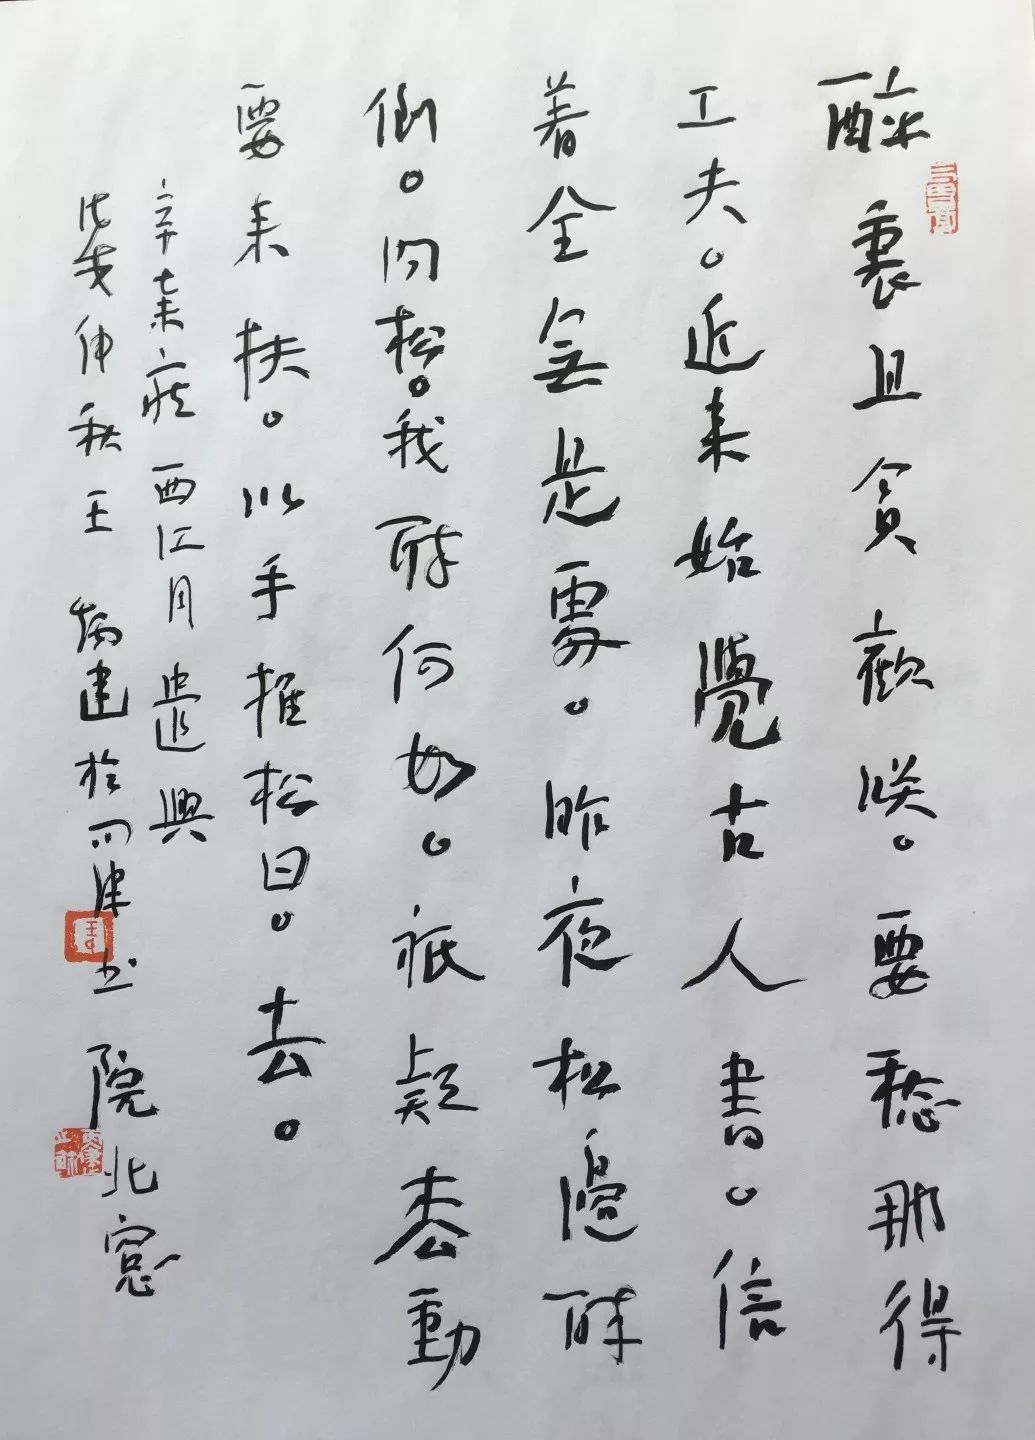 醉裏且貪歡咲。要愁那得
工夫。近来始覺古人書。信
着全無是處。昨夜松邊醉
倒。问松。我醉何如。祇疑松動
要来扶。以手推松曰。去。
辛棄疾西江月遣興
戊戌仲秋王 建於天津书
院北窓